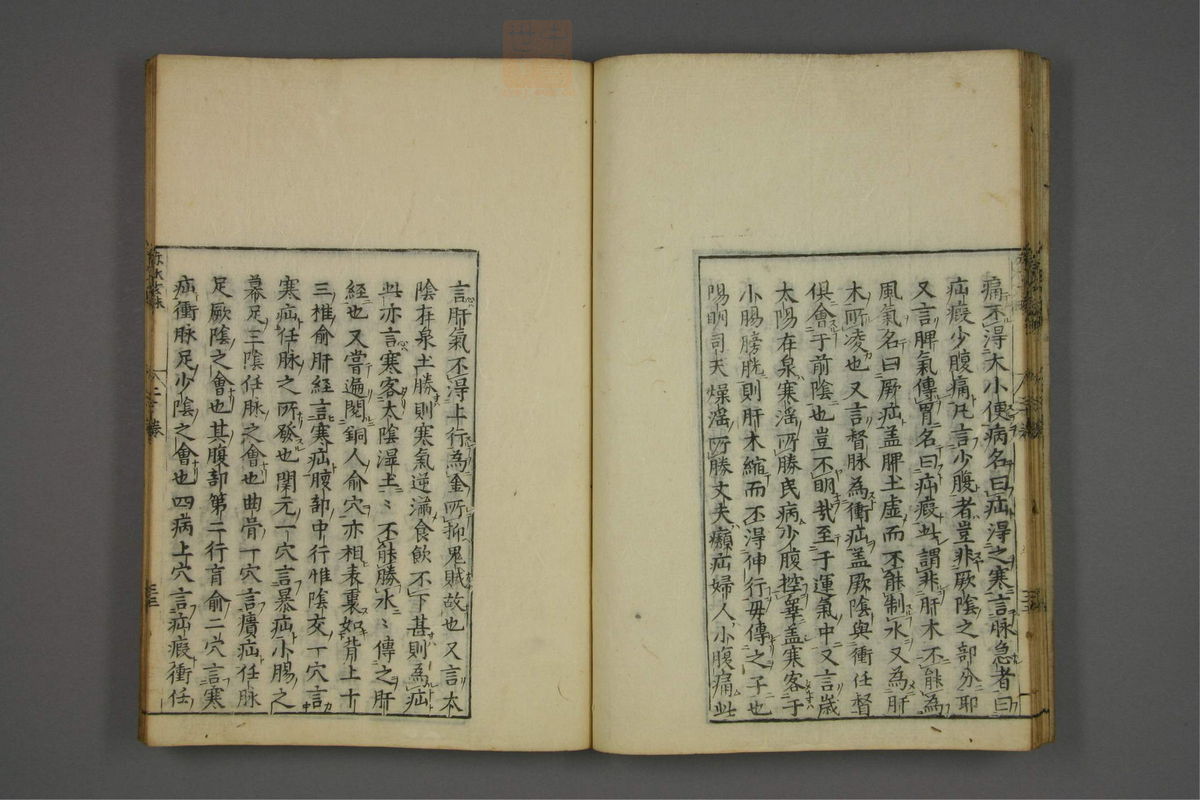 痛不得大小便病名曰疝得之寒言脉急者曰
疝瘕少腹痛凡言少腹者豈非厥陰之部分耶
又言脾氣傳胃名曰疝瘕此謂非肝木不能為
風氣名曰厥疝盖脾土虚而不能制水又為肝
木所凌也又言督脉為衝疝盖厥陰與衝任督
俱會于前陰也豈不明哉至于運氣中又言歳
太陽在泉寒淫所勝民病少腹控睾盖寒客于
小腸膀胱則肝木縮而不得伸行毋傳之子也
陽明司天燥淫所勝丈夫㿗疝婦人小腹痛此
言肝氣不得上行為金所抑鬼賊故也又言本
陰在泉土勝則寒氣逆滿食飲不下甚則為疝
此亦言寒客太陰湿土〻不能勝水〻傳之肝
經也又嘗遍閲銅人俞穴亦相表裏如背上十
三椎俞肝經言寒疝腹部中行惟陰交一穴言
寒疝任脉之所發也関元一穴言暴疝小腸之
募足三陰任脉之會也曲骨一穴言㿗疝任脉
足厥陰之會也其腹部第二行肓俞二穴言寒
疝衝脉足少陰之會也四病上穴言疝瘕衝任